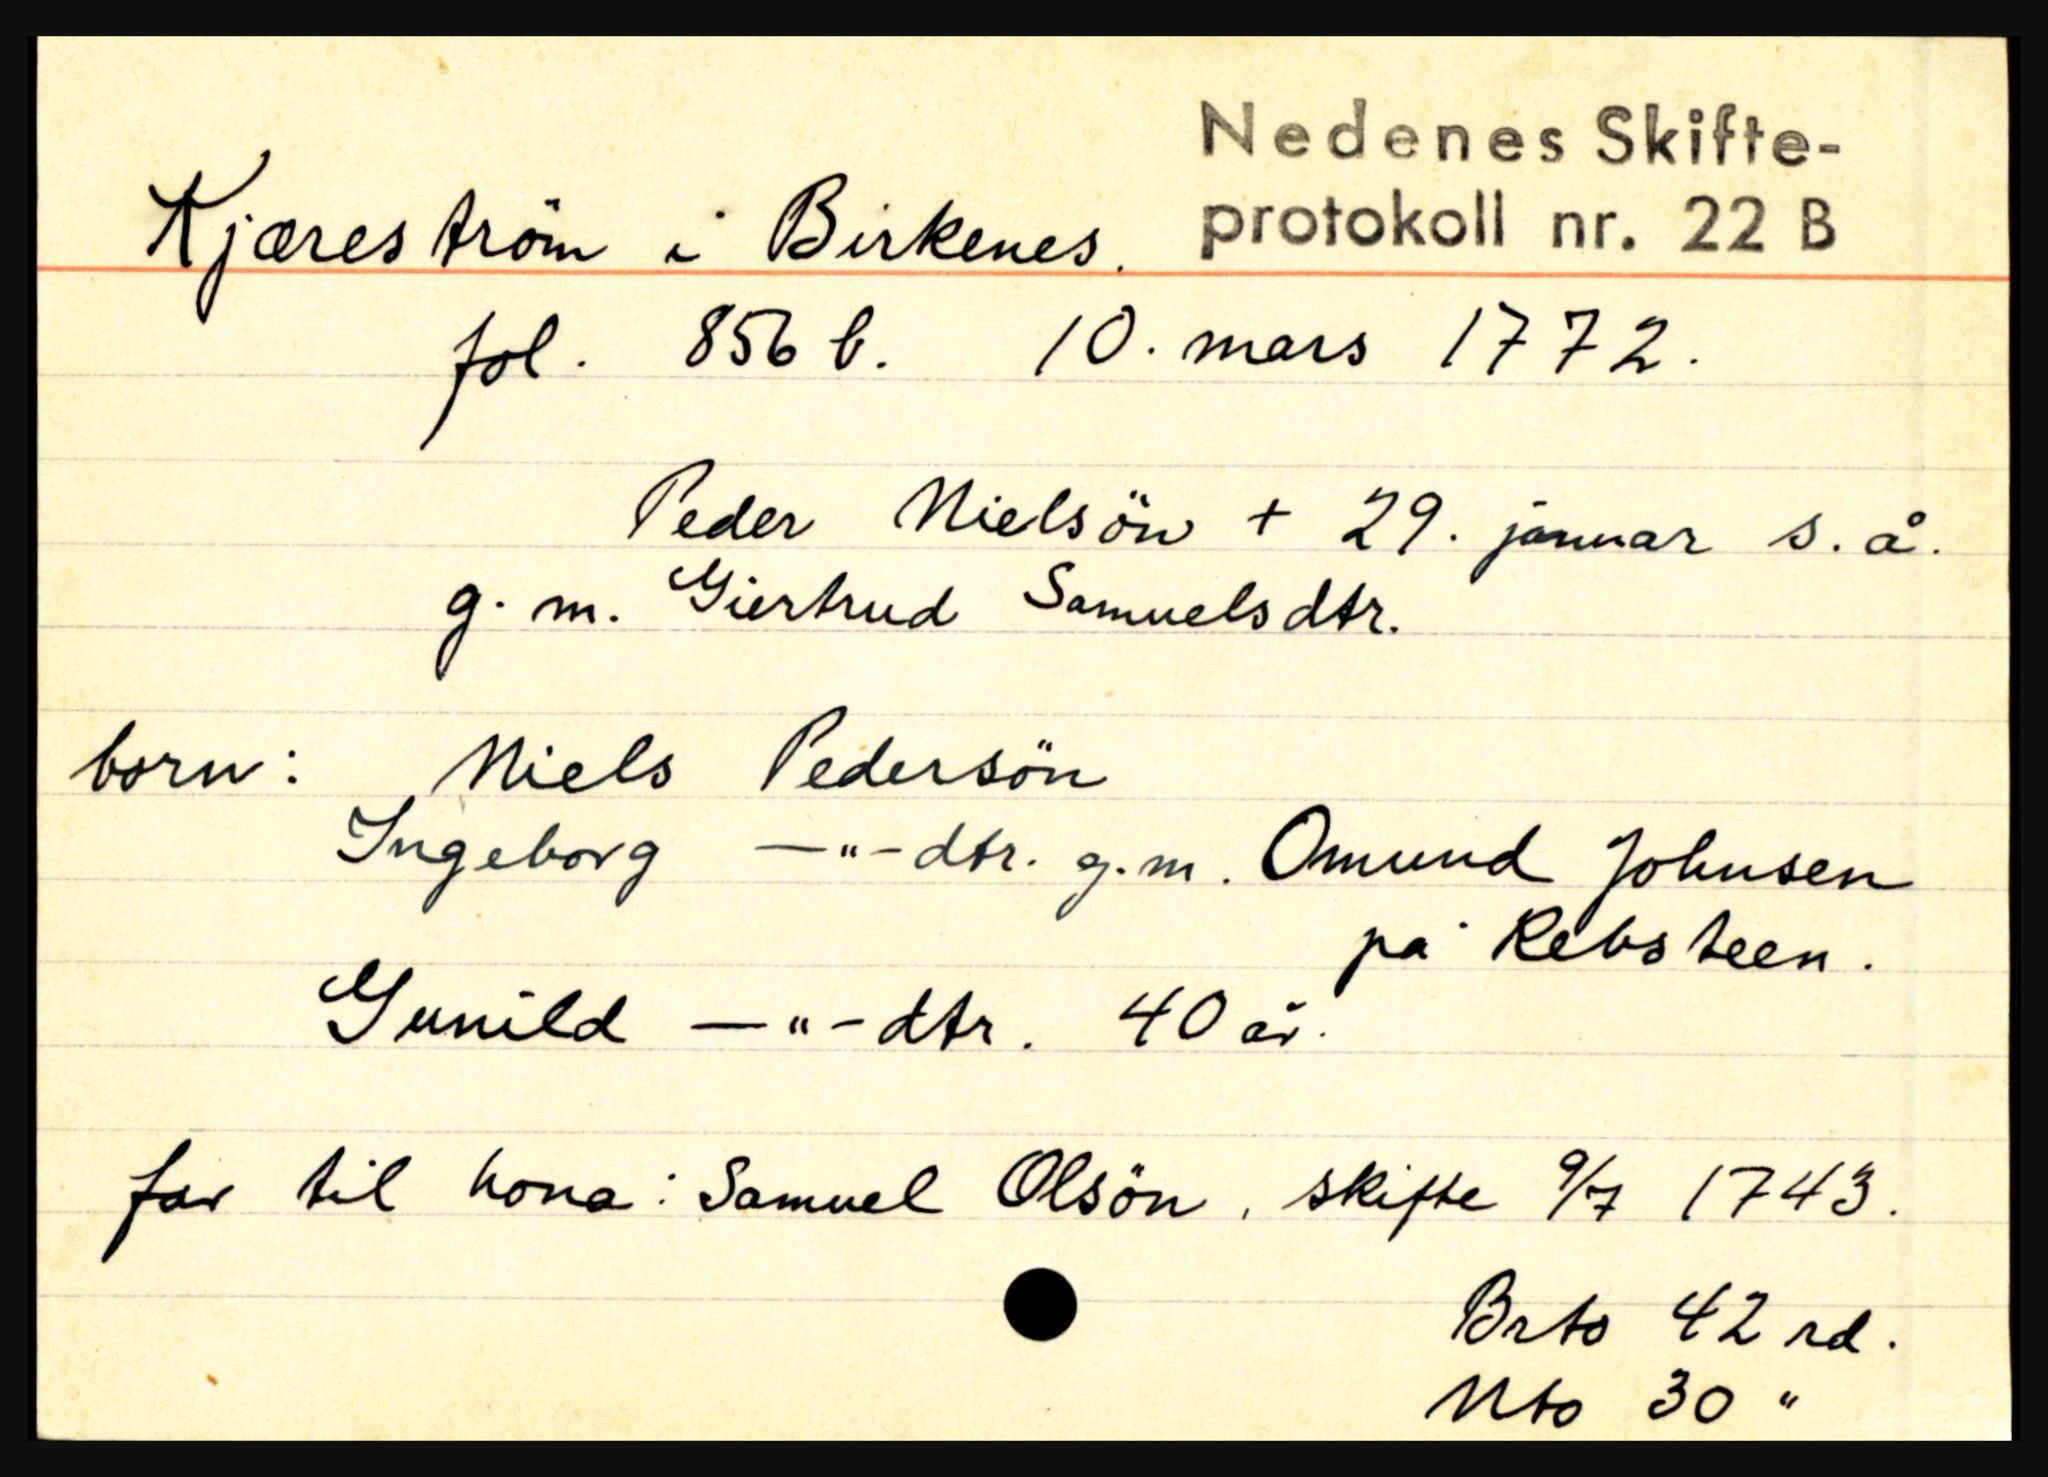 Nedenes Skifte-
protokoll nr. 22 B
Kjæreström i Birkenes.
fol. 856 b. 10. mars 1772.
Peder Nielsön + 29. januar s. å.
g. m. Giertrud Samuelsdtr.
born: Niels Pedersön
Ingeborg —"— dtr. g. m. Omund Johnsen
på Rebsteen.
Gunild —"— dtr. 40 år.
far til kona: Samuel Olsön, skifte 9/7 1743.
Brto 42 rd.
Nto 30 "